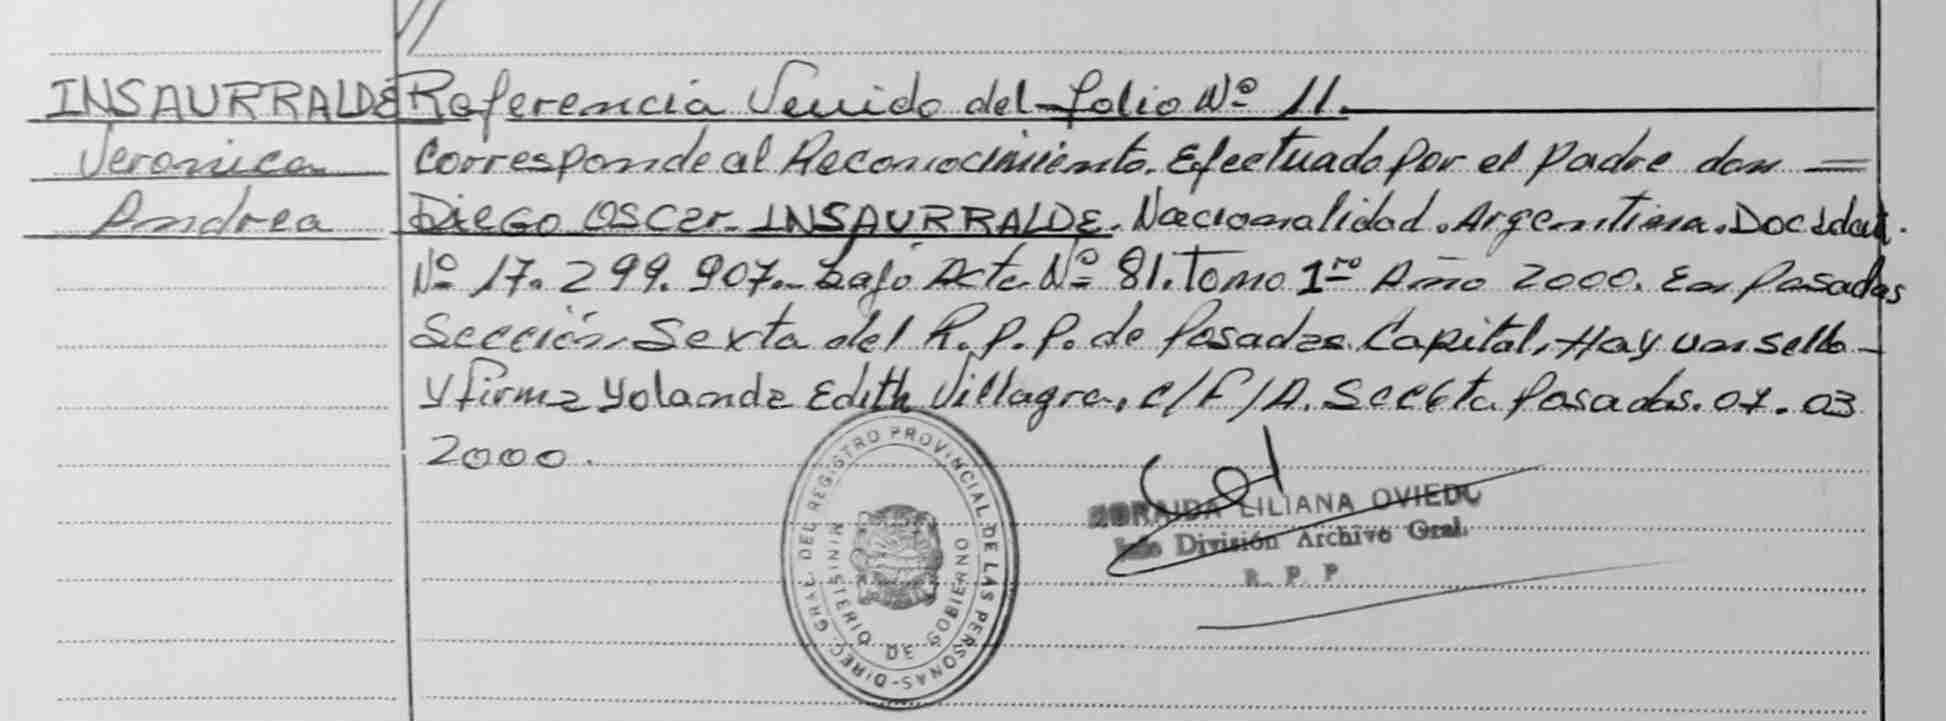 INSAURRALDE
Veronica
Andrea
Referencia Venido del folio Nº 11.
Corresponde al Reconocimiento. Efectuado por el padre don =
Diego Oscar INSAURRALDE. Nacionalidad. Argentina. Doc Idad.
Nº 17.299.907.- bajo Acta Nº 81. Tomo 1ro Año 2000. En Posadas
Sección Sexta del R.P.P. de Posadas Capital, Hay un sello -
y firma Yolanda Edith Villagra, c/F/A. Posadas. 07.03
2000.
DIREC. GRAL. DEL REGISTRO PROVINCIAL DE LAS PERSONAS -
MINISTERIO DE GOBIERNO
LILIANA OVIEDO
Jefe División Archivo Gral.
R. P. P